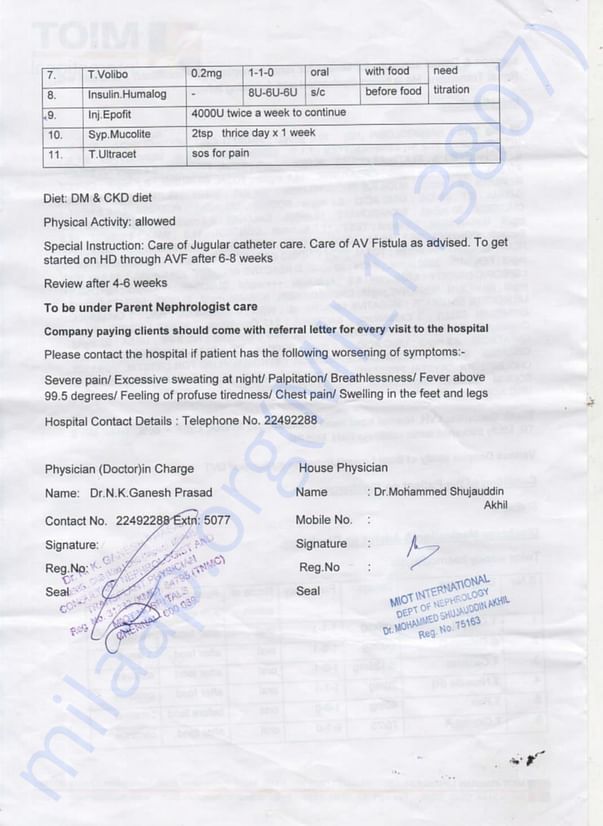 7. T.Volibo 0.2mg 1-1-0 oral with food need
8. Insulin.Humalog - 8U-6U-6U s/c before food titration
9. Inj.Epofit 4000U twice a week to continue
10. Syp.Mucolite 2tsp thrice day x 1 week
11. T.Ultracet sos for pain
Diet: DM & CKD diet
Physical Activity: allowed
Special Instruction: Care of Jugular catheter care. Care of AV Fistula as advised. To get
started on HD through AVF after 6-8 weeks
Review after 4-6 weeks
To be under Parent Nephrologist care
Company paying clients should come with referral letter for every visit to the hospital
Please contact the hospital if patient has the following worsening of symptoms:-
Severe pain/ Excessive sweating at night/ Palpitation/ Breathlessness/ Fever above
99.5 degrees/ Feeling of profuse tiredness/ Chest pain/ Swelling in the feet and legs
Hospital Contact Details : Telephone No. 22492288
Physician (Doctor)in Charge House Physician
Name: Dr.N.K.Ganesh Prasad Name : Dr.Mohammed Shujauddin
Akhil
Contact No. 22492288 Extn: 5077 Mobile No. :
Signature: Signature :
Reg.No: Reg.No :
Seal Seal
MIOT INTERNATIONAL
DEPT OF NEPHROLOGY
Dr. MOHAMMED SHUJAUDDIN AKHIL
Reg. No. 75163
milaap.org(MIL113807)